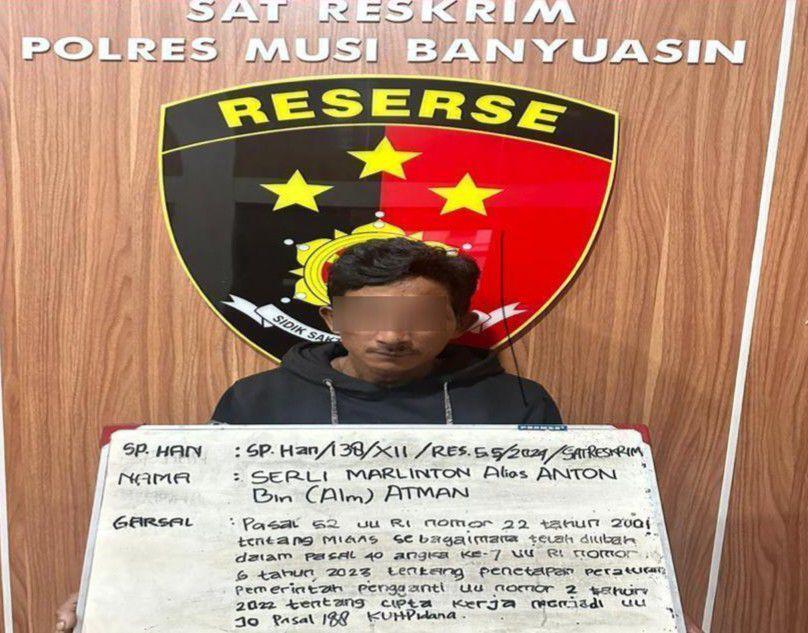 SAT RESKRIM
POLRES MUSI BANYUASIN
RESERSE
SIDIK SAK
SP. HAN : SP. Han/138/XII/RES.5.5/2024/SATRESKRIM
NAMA : SERLI MARLINTON Alias ANTON
Bin (Alm) ATMAN
GARSAL : Pasal 52 UU RI nomor 22 tahun 2001
tentang MIGAS sebagaimana telah diubah
dalam pasal 40 angka KE-7 UU RI nomor
6 tahun 2023 tentang penetapan peraturan
Pemerintah Pengganti UU nomor 2 tahun
2022 tentang cipta kerja menjadi UU
JO Pasal 188 KUHPidana.